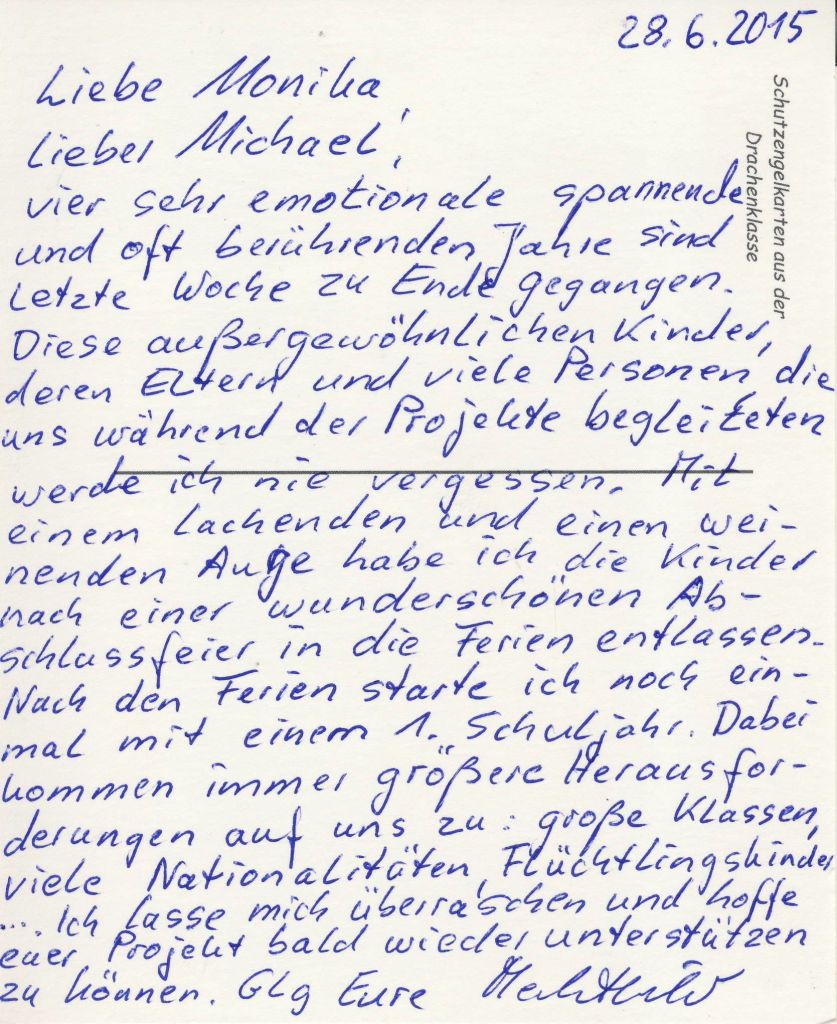 28.6.2015
Schutzengelkarten aus der
Drachenklasse
Liebe Monika,
Lieber Michael!,
vier sehr emotionale spannende
und oft berührenden Jahre sind
letzte Woche zu Ende gegangen.
Diese außergewöhnlichen Kinder,
deren Eltern und viele Personen, die
uns während der Projekte begleiteten
werde ich nie vergessen. Mit
einem lachenden und einen wei-
nenden Auge habe ich die Kinder
nach einer wunderschönen Ab-
schlussfeier in die Ferien entlassen.
Nach den Ferien starte ich noch ein-
mal mit einem 1. Schuljahr. Dabei
kommen immer größere Herausfor-
derungen auf uns zu: große Klassen,
viele Nationalitäten, Flüchtlingskinder
.... Ich lasse mich überraschen und hoffe
euer Projekt bald wieder unterstützen
zu können. Glg Eure